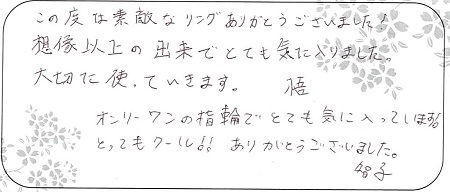 この度は素敵なリングありがとうございました!
想像以上の出来でとても気に入りました。
大切に使っていきます。 悟
オンリーワンの指輪でとても気に入っています!!
とってもクール!! ありがとうございました。
智子